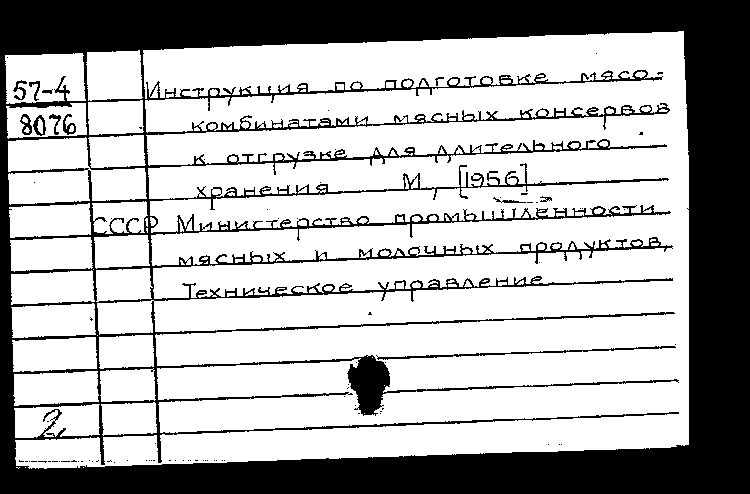 57-4 Инструкция по подготовке мясо-
8076 комбинатами мясных консервов
к отгрузке для длительного
хранения М, [1956].
СССР Министерство промышленности
мясных и молочных продуктов,
Техническое управление
2,